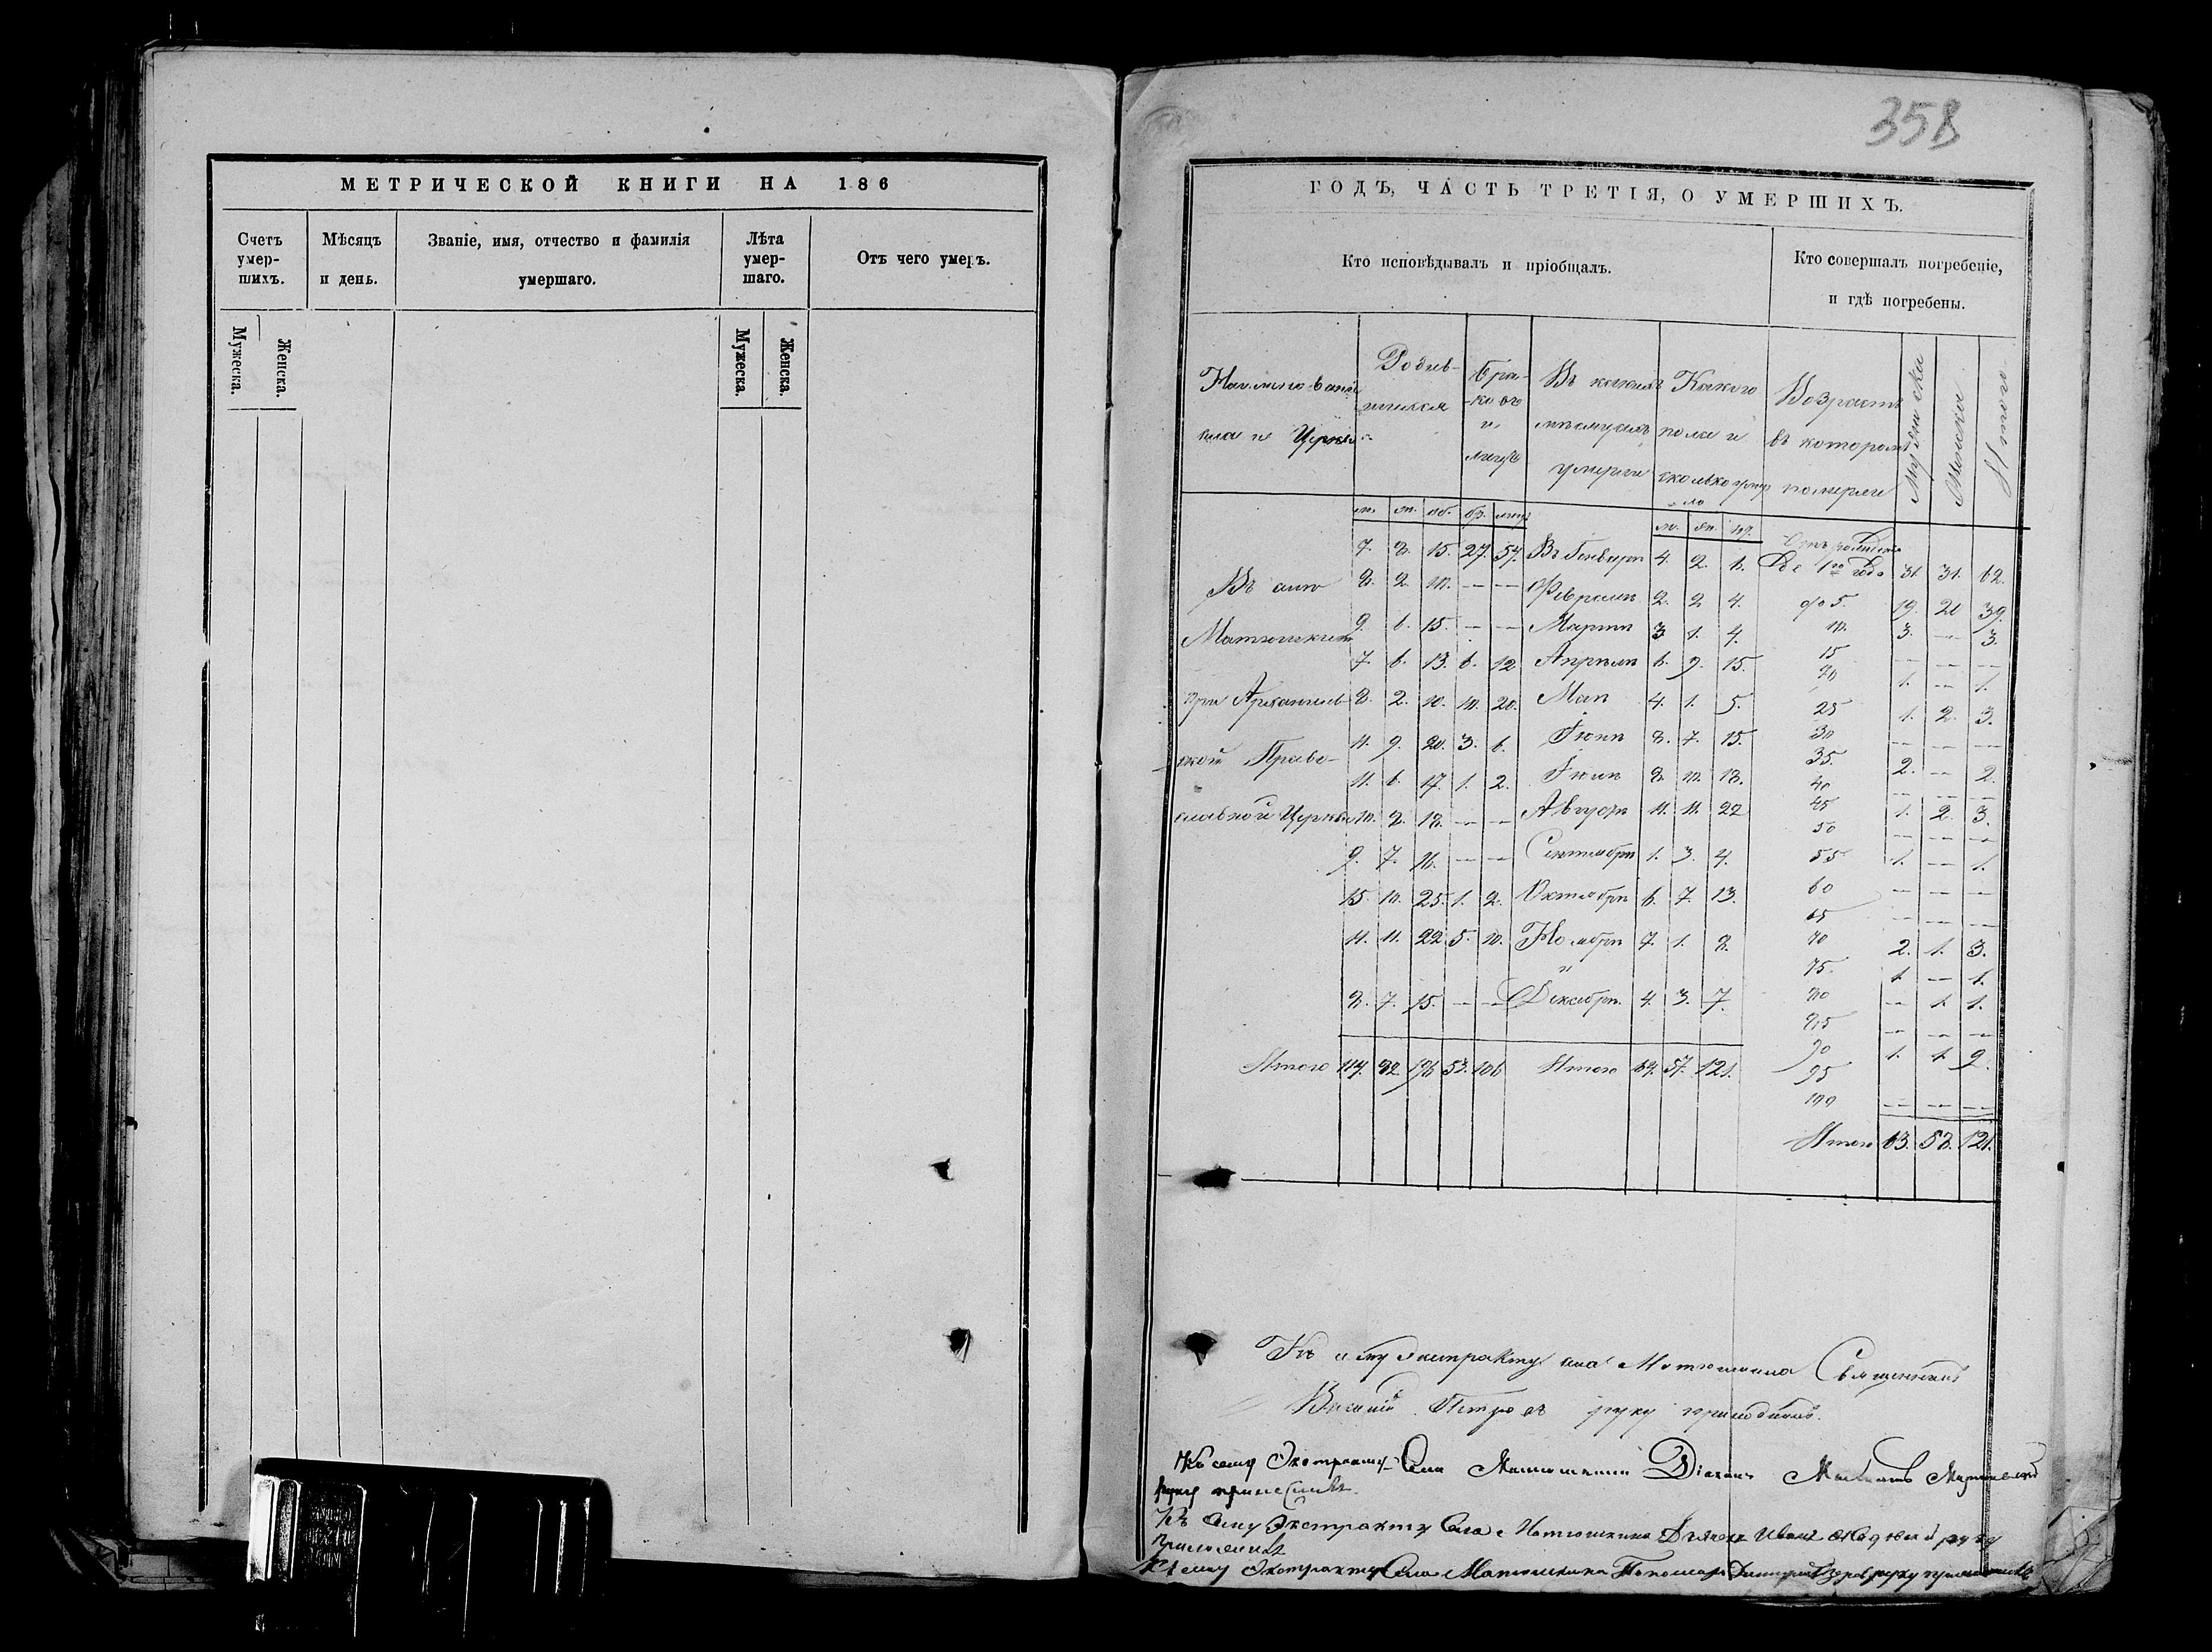 358
МЕТРИЧЕСКОЙ КНИГИ НА 186
Счетъ умер-шихъ.
Мѣсяцъ и день.
Званіе, имя, отчество и фамилія умершаго.
Лѣта умер-шаго.
Отъ чего умеръ.
Мужеска.
Женска.
Мужеска.
Женска.
ГОДЪ, ЧАСТЬ ТРЕТІЯ, О УМЕРШИХЪ.
Кто исповѣдывалъ и пріобщалъ.
Кто совершалъ погребеніе,
и гдѣ погребены.
Родив-
шихся
Бра-
ковъ
и
Какого
пола и
Возрастъ
въ которомъ
померли
Мужеска
Женска
Итого
7. 8. 15. 27. 54. Въ Генварѣ 4. 2. 6. До 1го года 31. 31. 62.
8. 2. 10. — — Февралѣ 2. 2 4. до 5. 19. 20 39.
9. 6. 15. — — Мартѣ 3 1. 4. 10. 3. — 3.
7. 6. 13. 6. 12 Апрѣлѣ 6. 9. 15. 15 — — —
20 1. — 1.
8. 2. 10. 10. 20. Маѣ 4. 1. 5. 25 1. 2. 3.
11. 9. 20. 3. 6. Іюнѣ 8. 7. 15. 30 — — —
35. 2. — 2.
11. 6. 17. 1. 2. Іюлѣ 8. 10. 18. 40 — — —
10. 8. 18. — — Августѣ 11. 11. 22 45 1. 2. 3.
50 — — —
9. 7. 16. — — Сентябрѣ 1. 3. 4. 55 1. — 1.
15. 10. 25. 1. 2. Октябрѣ 6. 7. 13. 60 — — —
65 — — —
11. 11. 22 5. 10. Ноябрѣ 7. 1. 8. 70 2. 1. 3.
и 75. 1. — 1.
8. 7. 15. — — Декабрѣ 4. 3. 7. 80 — 1. 1.
85 — — —
90 1. 1. 2.
95
100 — — —
Въ селѣ
Матюшкинѣ
при Архангель-
ской Право-
славной Церкви
Итого 114. 82 196 53. 106 Итого 64. 57. 121.
Итого 63. 58. 121.
Къ сему экстракту села Матюшкина Священникъ
Петровъ руку приложилъ.
Къ сему Экстракту Села Матюшкина Діаконъ
руку приложилъ.
Къ сему Экстракту Села Матюшкина Дьячекъ Иванъ руку
приложилъ
Къ сему Экстракту Села Матюшкина Пономарь Димитрій руку приложилъ